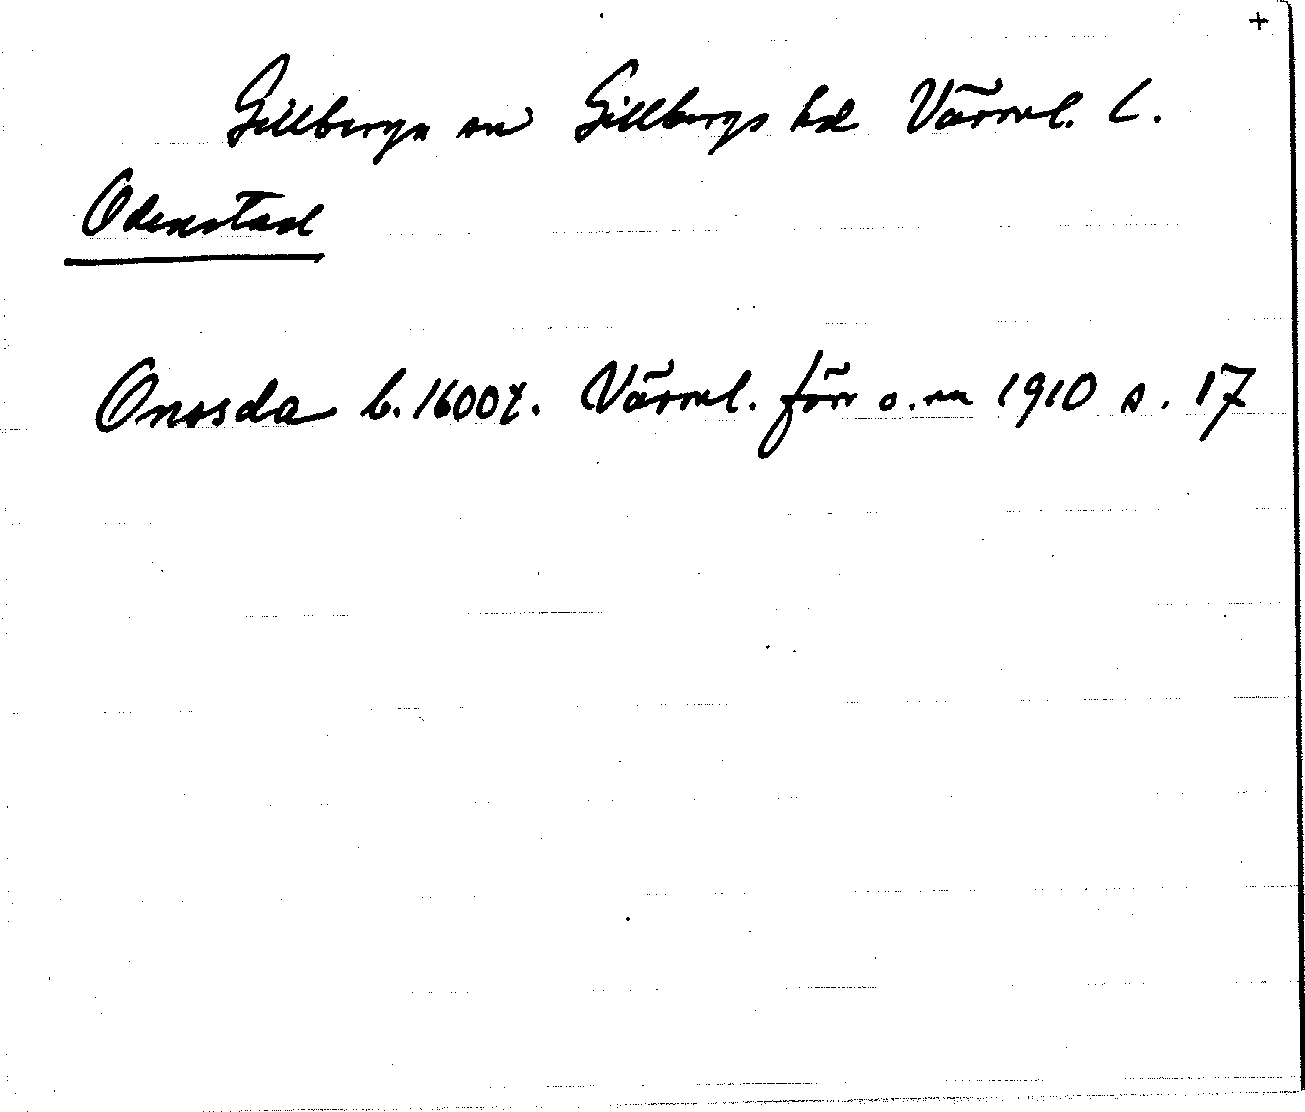 +
Gillberga sn Gillbergs hd Värml. l.
Odenstad
Onosda b. 1600t. Värml. förr o. nu 1910 s. 17